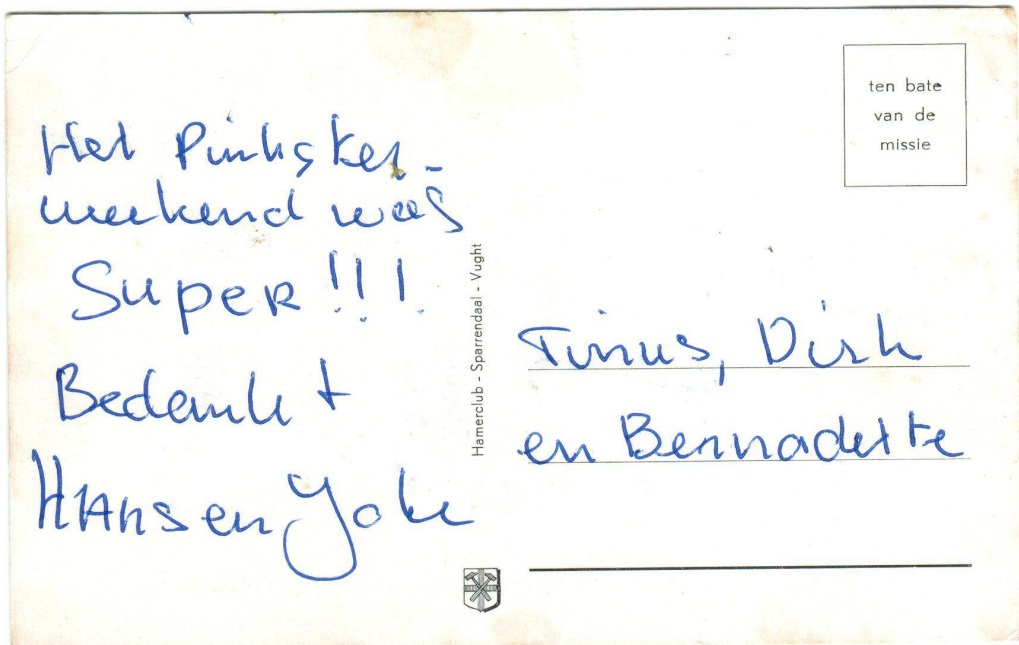 Het Pinkster-
weekend was
Super!!!
Bedankt
Hans en Joke
Hamerclub - Sparrendaal - Vught
ten bate
van de
missie
Tinus, Dirk
en Bernadette